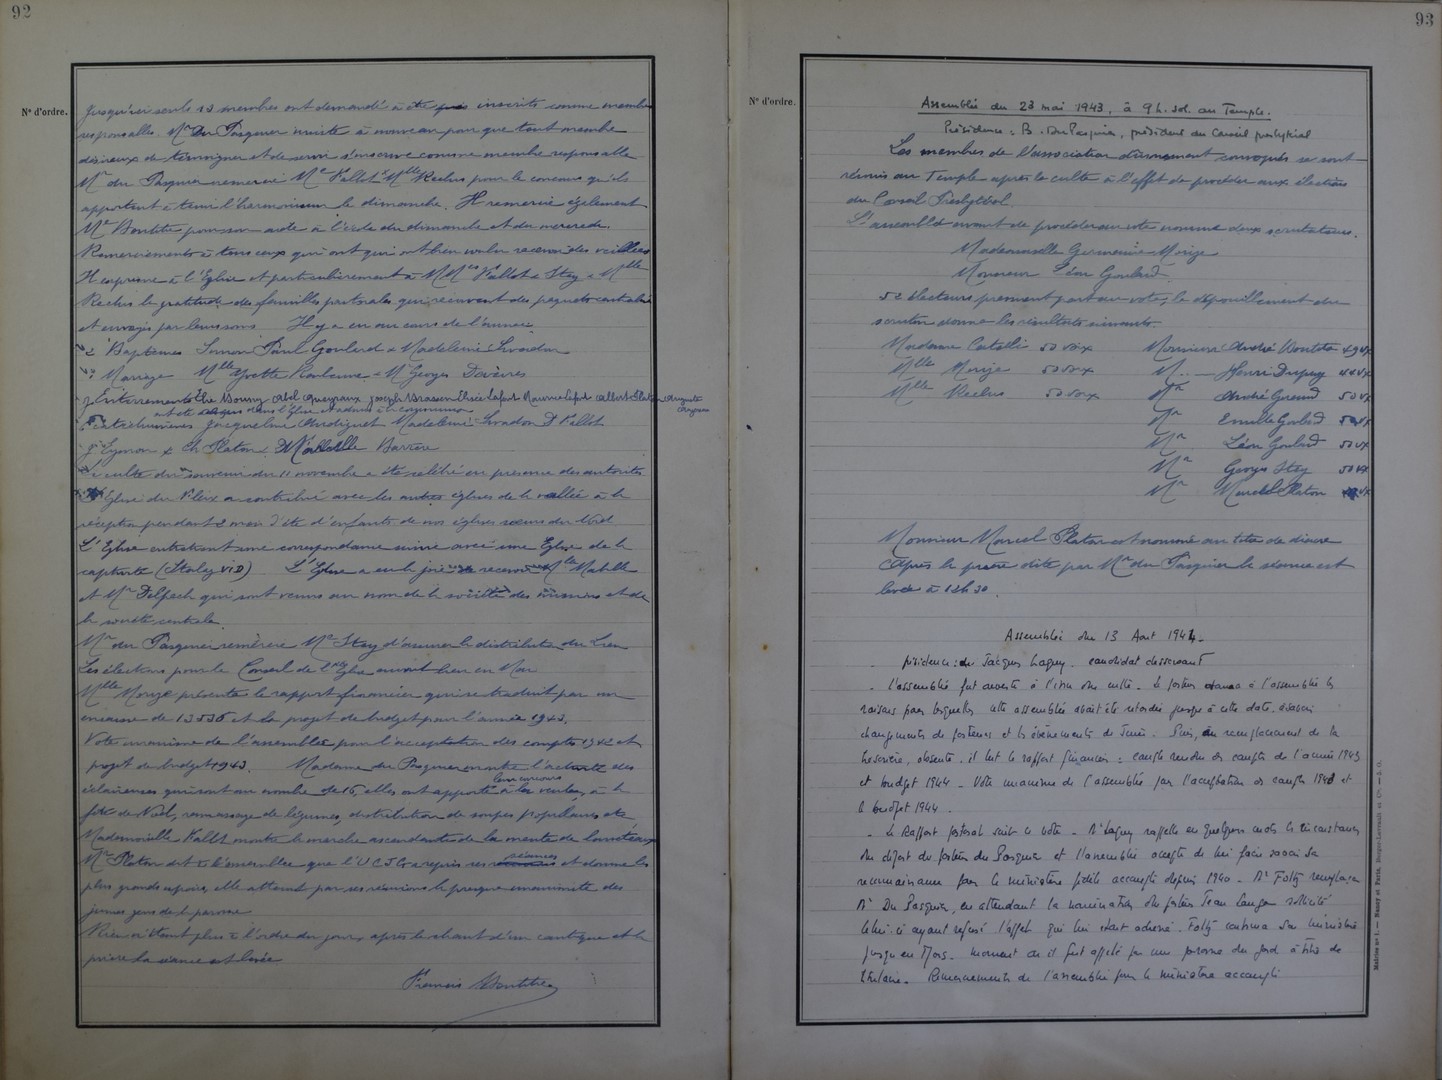 92
N° d'ordre.
Jusqu'ici seuls 13 membres ont demandé à être inscrits comme membre
responsables. Mr Du Pasquier insiste à nouveau pour que tout membre
désireux de témoigner et de servir s'inscrive comme membre responsable
Mr du Pasquier remercie Mr Vallot & Mlle Reclus pour le concours qu'ils
apportent à tenir l'harmonium le dimanche. Il remercie également
Mr Boutitie pour son aide à l'école du dimanche et du mercredi.
Remerciements à tous ceux qui ont bien voulu recevoir des veillées
Il exprime à l'Eglise et particulièrement à Stey & Mlle
Reclus la gratitude des familles pastorales qui reçoivent des paquets
et envoyés par leurs soins. Il y a eu au cours de l'année
2 Baptêmes Simon Paul Goulard & Madeleine
Mariage Mlle Yvette & Mr Georges
Elie Bonny Abel Queyraux Joseph Elisée Lafon Maurice Lafon Albert Platon Auguste
Jacqueline Madeleine
J. Eymon & Ch Platon & Barrière
culte du souvenir du 11 novembre a été célébré en présence des autorités
Eglise du Fleix a contribué avec les autres églises de la vallée à la
réception pendant 2 mois d'été d'enfants de nos églises sœurs du Nord
L'Eglise entretient une correspondance suivie avec une Eglise de la
captivité (Stalag VI D) L'Eglise a eu la joie de recevoir
et Mr Delpech qui sont venus au nom de la société des missions et de
la société centrale.
Mr du Pasquier remercie Mr Stey d'assurer la distribution du Lien
Les élections pour le Conseil de l'Eglise auront lieu en Mai
Mlle Morize présente le rapport financier qui se traduit par un
encaisse de 13536 et le projet de budget pour l'année 1943.
Vote unanime de l'assemblée pour l'acceptation des comptes 1942 et
projet de budget 1943. Madame du Pasquier montre l'activité des
leur concours
éclaireuses qui sont au nombre de 16, elles ont apporté à la vente, à la
fête de Noël, ramassage de légumes, distribution de soupes populaires etc
Mademoiselle Vallot montre la marche ascendante de la meute de louveteaux
séances
Mr Platon dit à l'assemblée que l'U C J G a repris ses et donne les
plus grands espoirs, elle atteint par ses réunions la presque unanimité des
jeunes gens de la paroisse
Rien n'étant plus à l'ordre du jour, après le chant d'un cantique et la
prière la séance est levée
93
N° d'ordre.
Assemblée du 23 mai 1943, à 9 h. sol. au Temple.
Présidence : B. Du Pasquier, président du Conseil presbytéral
Les membres de l'association dûment convoqués se sont
réunis au Temple après le culte à l'effet de procéder aux élections
du Conseil Presbytéral.
L'assemblée avant de procéder au vote nomme deux scrutateurs.
Mademoiselle Germaine Morize
Monsieur Léon Goulard
52 électeurs prennent part au vote, le dépouillement du
scrutin donne les résultats suivants
Madame Catelli 50 voix Monsieur André Boutitie 49 vx
Mlle Morize 50 voix M. Henri Dupuy
Mlle Reclus 50 voix Mr André 50 vx
Mr Emile Goulard
Mr Léon Goulard 50 vx
Mr Georges Stey 50 vx
Mr Marcel Platon
Monsieur Marcel Platon est nommé au titre de diacre
Après la prière dite par Mr du Pasquier la séance est
levée à 12h30.
Assemblée du 13 Aout 1944.
présidence : de Jacques Lagny. candidat desservant
- L'assemblée fut ouverte à l'issue du culte. Le pasteur donna à l'assemblée les
raisons pour lesquelles cette assemblée avait été retardée jusqu'à cette date. à savoir
changements de pasteurs et les évènements de Juin. Puis, en remplacement de la
trésorière, absente, il lut le rapport financier : compte rendu des comptes de l'année 1943
et budget 1944 - Vote unanime de l'assemblée pour l'acceptation des comptes 1943 et
le budget 1944.
- Le Rapport pastoral suit ce vote - Mr Lagny rappelle en quelques mots les circonstances
du départ du pasteur du Pasquier et l'assemblée accepte de lui faire savoir sa
reconnaissance pour le ministère fidèle accompli depuis 1940 - Mr Foltz remplaça
Mr Du Pasquier, en attendant la nomination du pasteur Jean sollicité
celui-ci ayant refusé l'appel qui lui était adressé. Foltz continua son ministère
jusqu'en Mars - moment où il fut appelé par une paroisse du gard à titre de
titulaire. Remerciements de l'assemblée pour le ministère accompli